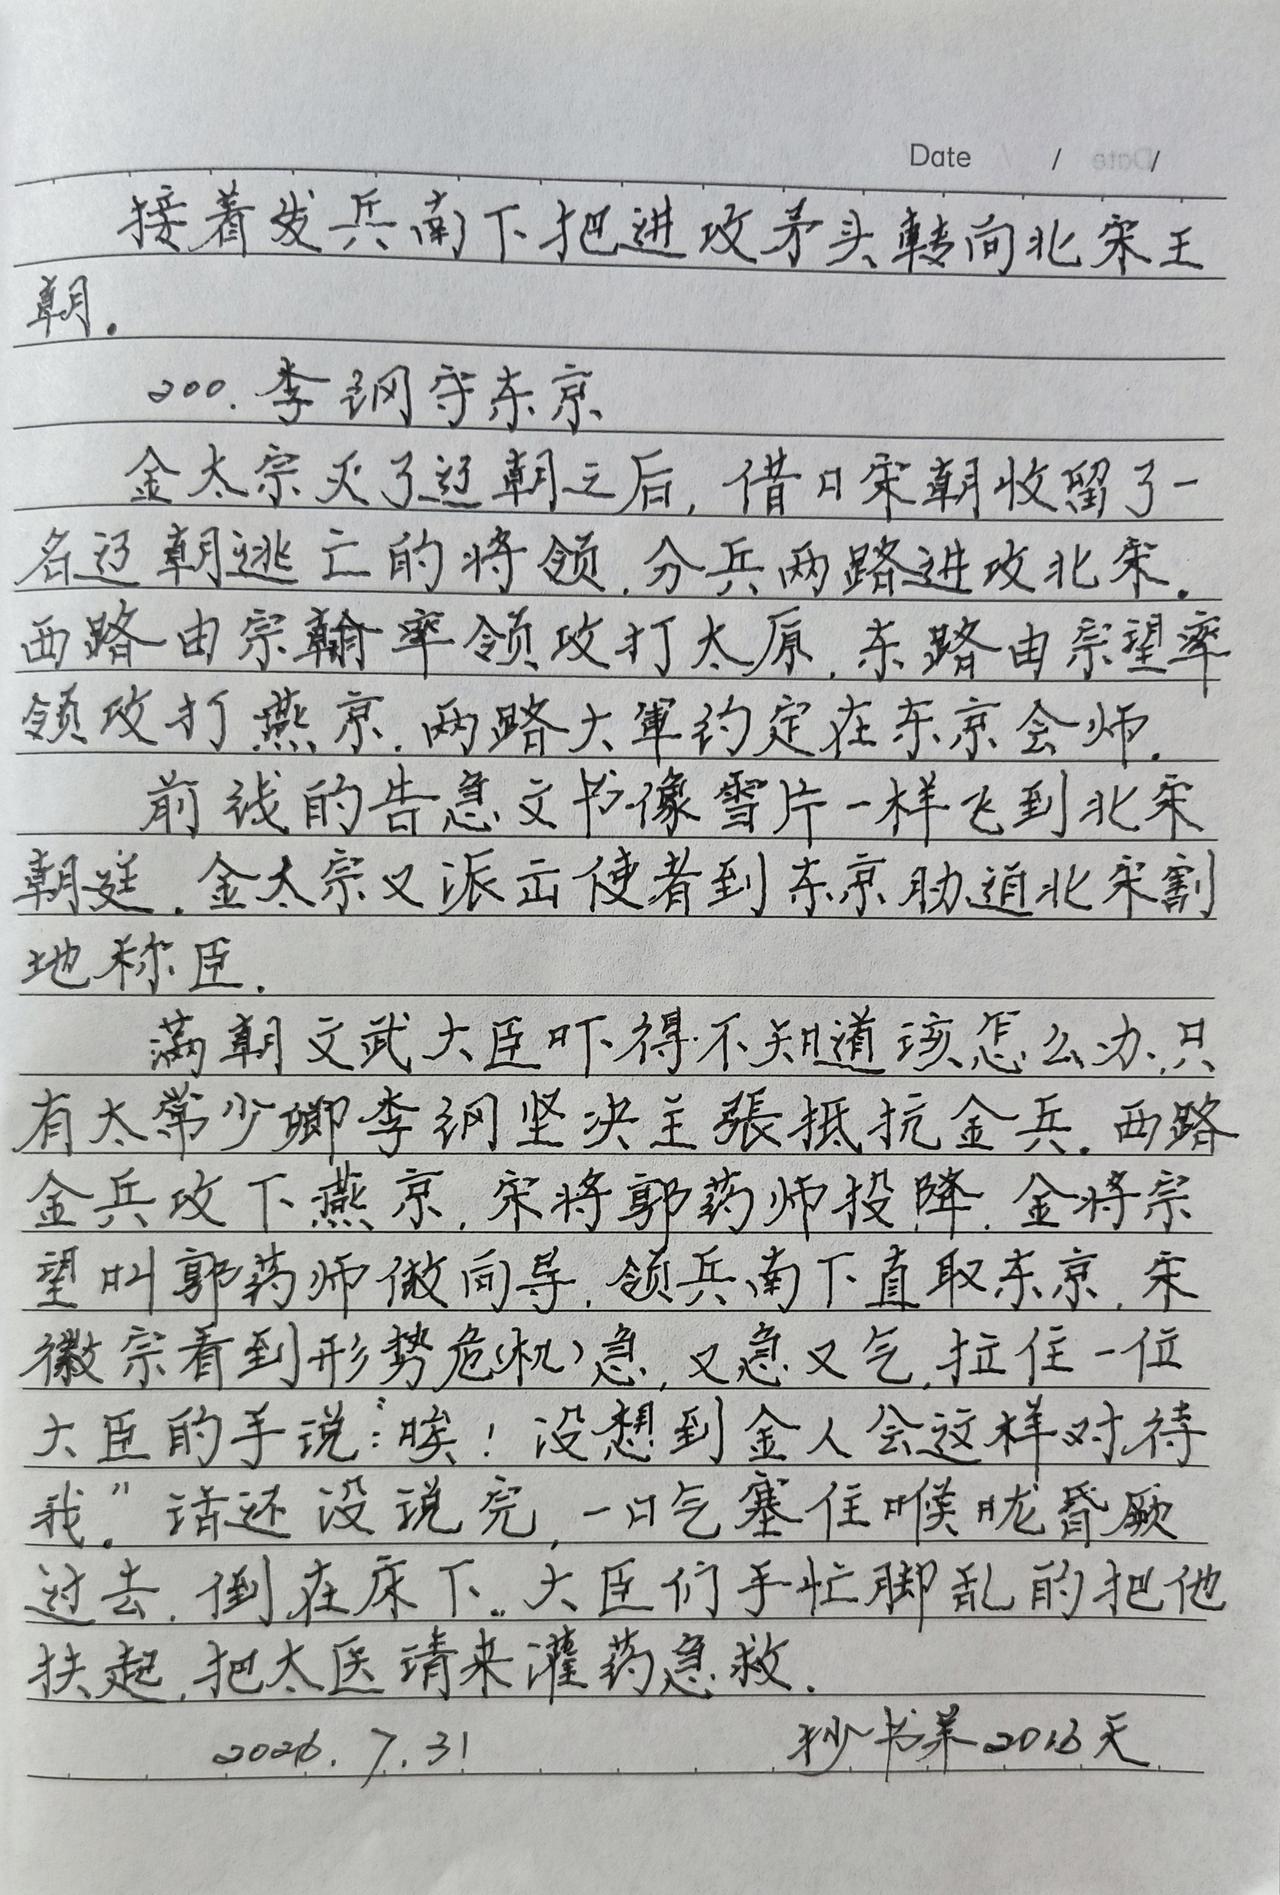 Date / /
接着发兵南下把进攻矛头轉向北宋王
朝.
200.李纲守东京
金太宗灭了辽朝之后,借口宋朝收留了一
名辽朝逃亡的将领.分兵两路进攻北宋.
西路由宗翰率领攻打太原.东路由宗望率
领攻打燕京.两路大軍约定在东京会师.
前线的告急文书像雪片一样飞到北宋
朝廷.金太宗又派出使者到东京胁迫北宋割
地称臣.
满朝文武大臣吓得不知道该怎么办,只
有太常少卿李纲坚决主張抵抗金兵.西路
金兵攻下燕京,宋将郭药师投降.金将宗
望叫郭药师做向导,领兵南下直取东京,宋
徽宗看到形势危(机)急,又急又气,拉住一位
大臣的手说:"唉!没想到金人会这样对待
我."话还没说完,一口气塞住喉咙昏厥
过去,倒在床下..大臣们手忙脚乱的把他
扶起,把太医请来灌药急救.
2026.7.31 抄书第2016天